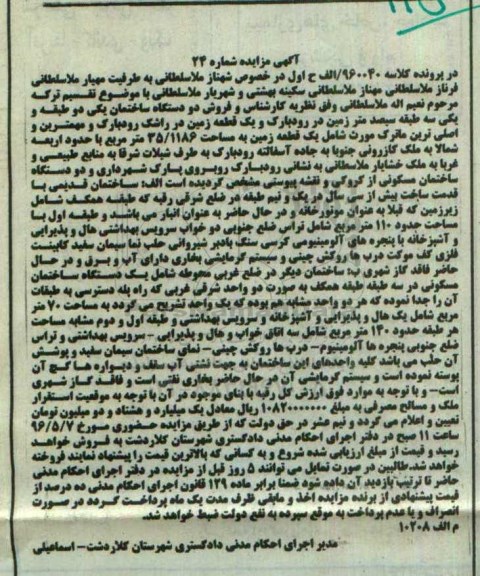 آگهی مزایده شماره ۲۴
در پرونده کلاسه ۹۶۰۰۴۰/الف ح اول در خصوص شهناز ملاسلطانی به طرفیت مهیار ملاسلطانی
فرناز ملاسلطانی مهناز ملاسلطانی سکینه بهشتی و شهریار ملاسلطانی با موضوع تقسیم ترکه
مرحوم نعیم اله ملاسلطانی وفق نظریه کارشناس و فروش دو دستگاه ساختمان یکی دو طبقه و
یکی سه طبقه سیصد متر زمین در رودبارک و یک قطعه زمین در راشک رودبارک و مهمترین و
اصلی ترین ماترک مورث شامل یک قطعه زمین به مساحت ۳۵/۱۱۸۶ متر مربع با حدود اربعه
شمالا به ملک گازرونی جنوبا به جاده آسفالته رودبارک به طرف شیلات شرقا به منابع طبیعی و
غربا به ملک خشایار ملاسطانی به نشانی رودبارک روبروی پارک شهرداری و دو دستگاه
ساختمان مسکونی از کروکی و نقشه پیوستی مشخص گردیده است الف: ساختمان قدیمی با
قدمت ساخت بیش از سی سال در یک و نیم طبقه در ضلع شرقی رقبه که طبقه همکف شامل
زیرزمین که قبلا به عنوان موتورخانه و در حال حاضر به عنوان انبار می باشد و طبقه اول با
مساحت حدود ۱۱۰ متر مربع شامل تراس ضلع جنوبی دو خواب سرویس بهداشتی هال و پذیرایی
و آشپزخانه با پنجره های آلومینیومی کرسی سنگ بادبر شیروانی حلب نما سیمان سفید کابینت
فلزی کف موکت درب ها روکش چینی و سیستم گرمایشی بخاری دارای آب و برق و در حال
حاضر فاقد گاز شهری ب: ساختمان دیگر در ضلع غربی محوطه شامل یک دستگاه ساختمان
مسکونی در سه طبقه طبقه همکف به صورت دو واحد شرقی غربی که راه پله دسترسی به طبقات
آن را جدا نموده که هر دو واحد مشابه هم بوده که یک واحد تشریح می گردد به مساحت ۷۰ متر
مربع شامل یک هال و پذیرایی و آشپزخانه و سرویس بهداشتی و طبقه اول و دوم مشابه مساحت
هر طبقه حدود ۱۴۰ متر مربع شامل سه اتاق خواب و هال و پذیرایی - سرویس بهداشتی و تراس
ضلع جنوبی پنجره ها آلومینیوم- درب ها روکش چینی- نمای ساختمان سیمان سفید و پوشش
آن حلب می باشد کلیه واحدهای این ساختمان به جهت نشتی آب سقف و دیواره ها گچ آن
پوسته نموده است و سیستم گرمایشی آن در حال حاضر بخاری نفتی است و فاقد گاز شهری
است- و با توجه به موارد فوق ارزش کل رقبه با بنای موجود در آن با توجه به موقعیت استقرار
ملک و مسالح مصرفی به مبلغ ۱۰۸۲۰۰۰۰۰۰۰ ریال معادل یک میلیارد و هشتاد و دو میلیون تومان
تعیین و اعلام می گردد و نیم عشر در حق دولت که از طریق مزایده حضوری مورخ ۹۶/۵/۷
ساعت ۱۱ صبح در دفتر اجرای احکام مدنی دادگستری شهرستان کلاردشت به فروش خواهد
رسید و قیمت از مبلغ ارزیابی شده شروع و به کسانی که بالاترین قیمت را پیشنهاد نمایند فروخته
خواهد شد.طالبین در صورت تمایل می توانند ۵ روز قبل از مزایده در دفتر اجرای احکام مدنی
حاضر تا ترتیب بازدید آن داده شود ضمنا برابر ماده ۱۲۹ قانون اجرای احکام مدنی ده درصد از
قیمت پیشنهادی از برنده مزایده اخذ و مابقی ظرف مدت یک ماه پرداخت گردد در صورت
انصراف و یا عدم پرداخت به موقع سپرده به نفع دولت ضبط خواهد شد.
م الف ۱۰۲۰۸
مدیر اجرای احکام مدنی دادگستری شهرستان کلاردشت- اسماعیلی